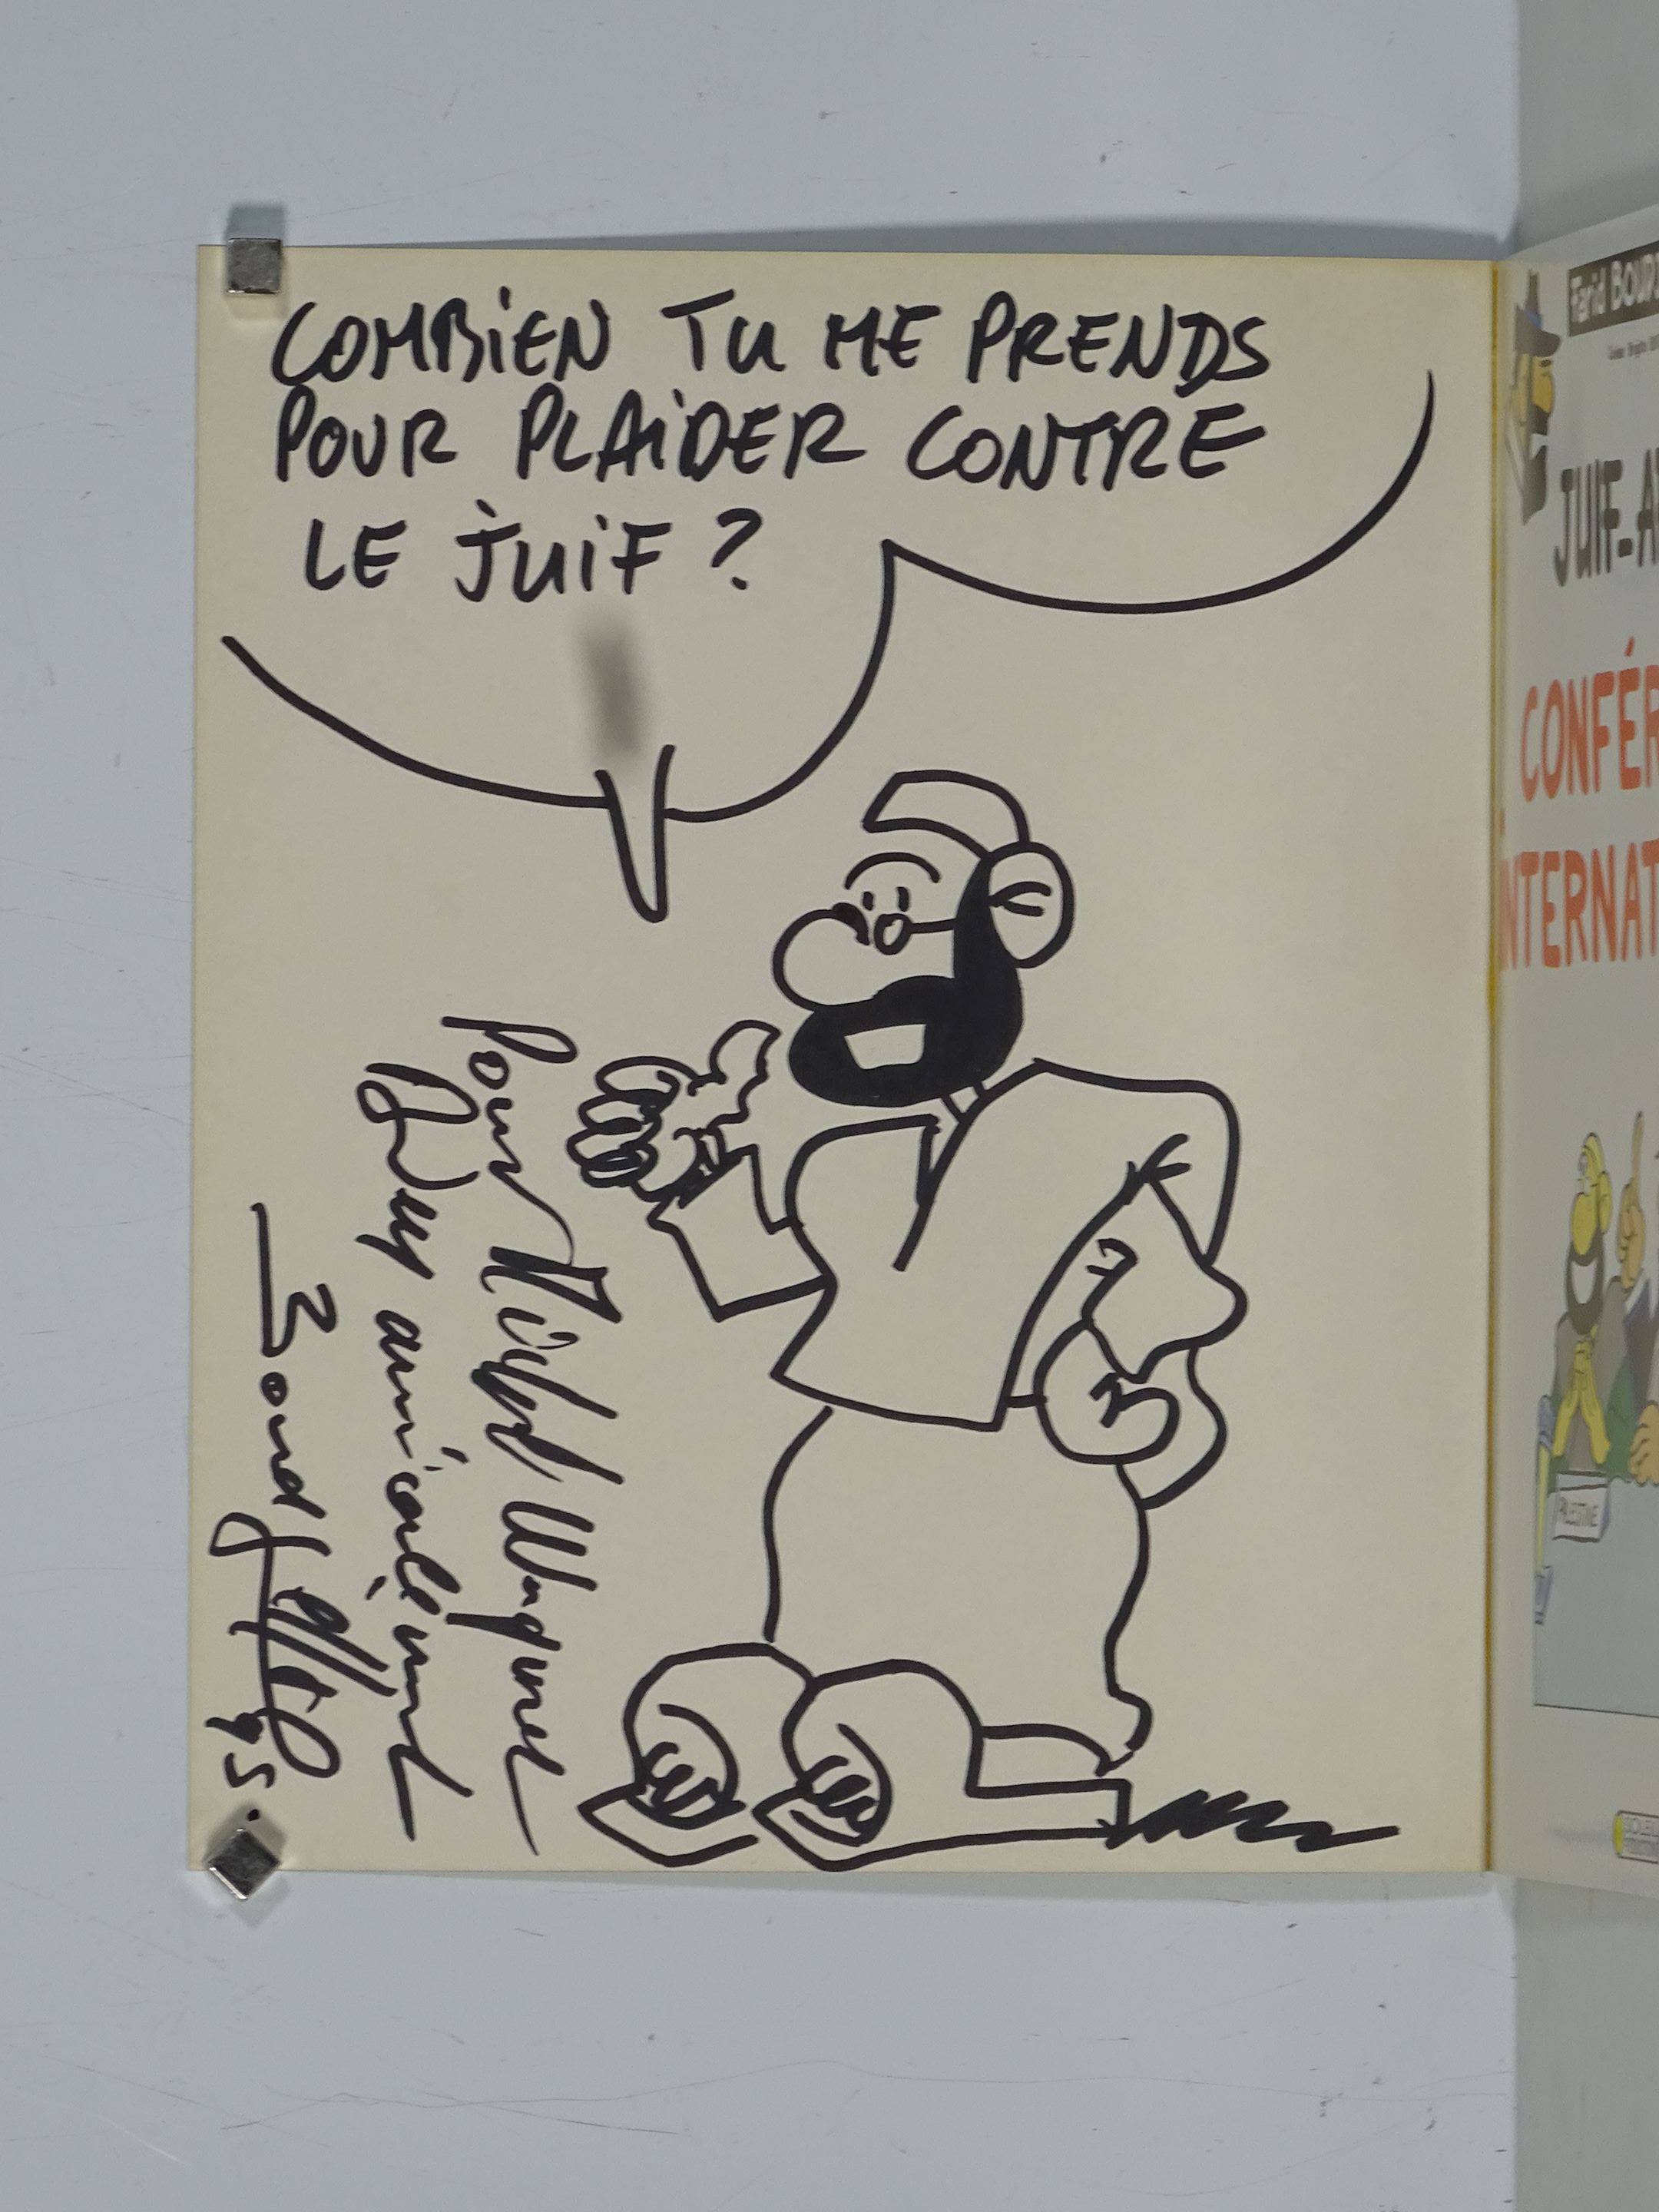 COMBiEN TU ME PRENDS
POUR PLAiDER CONTRE
LE JUiF ?
Pour
amicalement
95.
Farid BOUDJ
JUIF-A
CONFÉR
INTERNAT
PALESTINE
SOLEIL